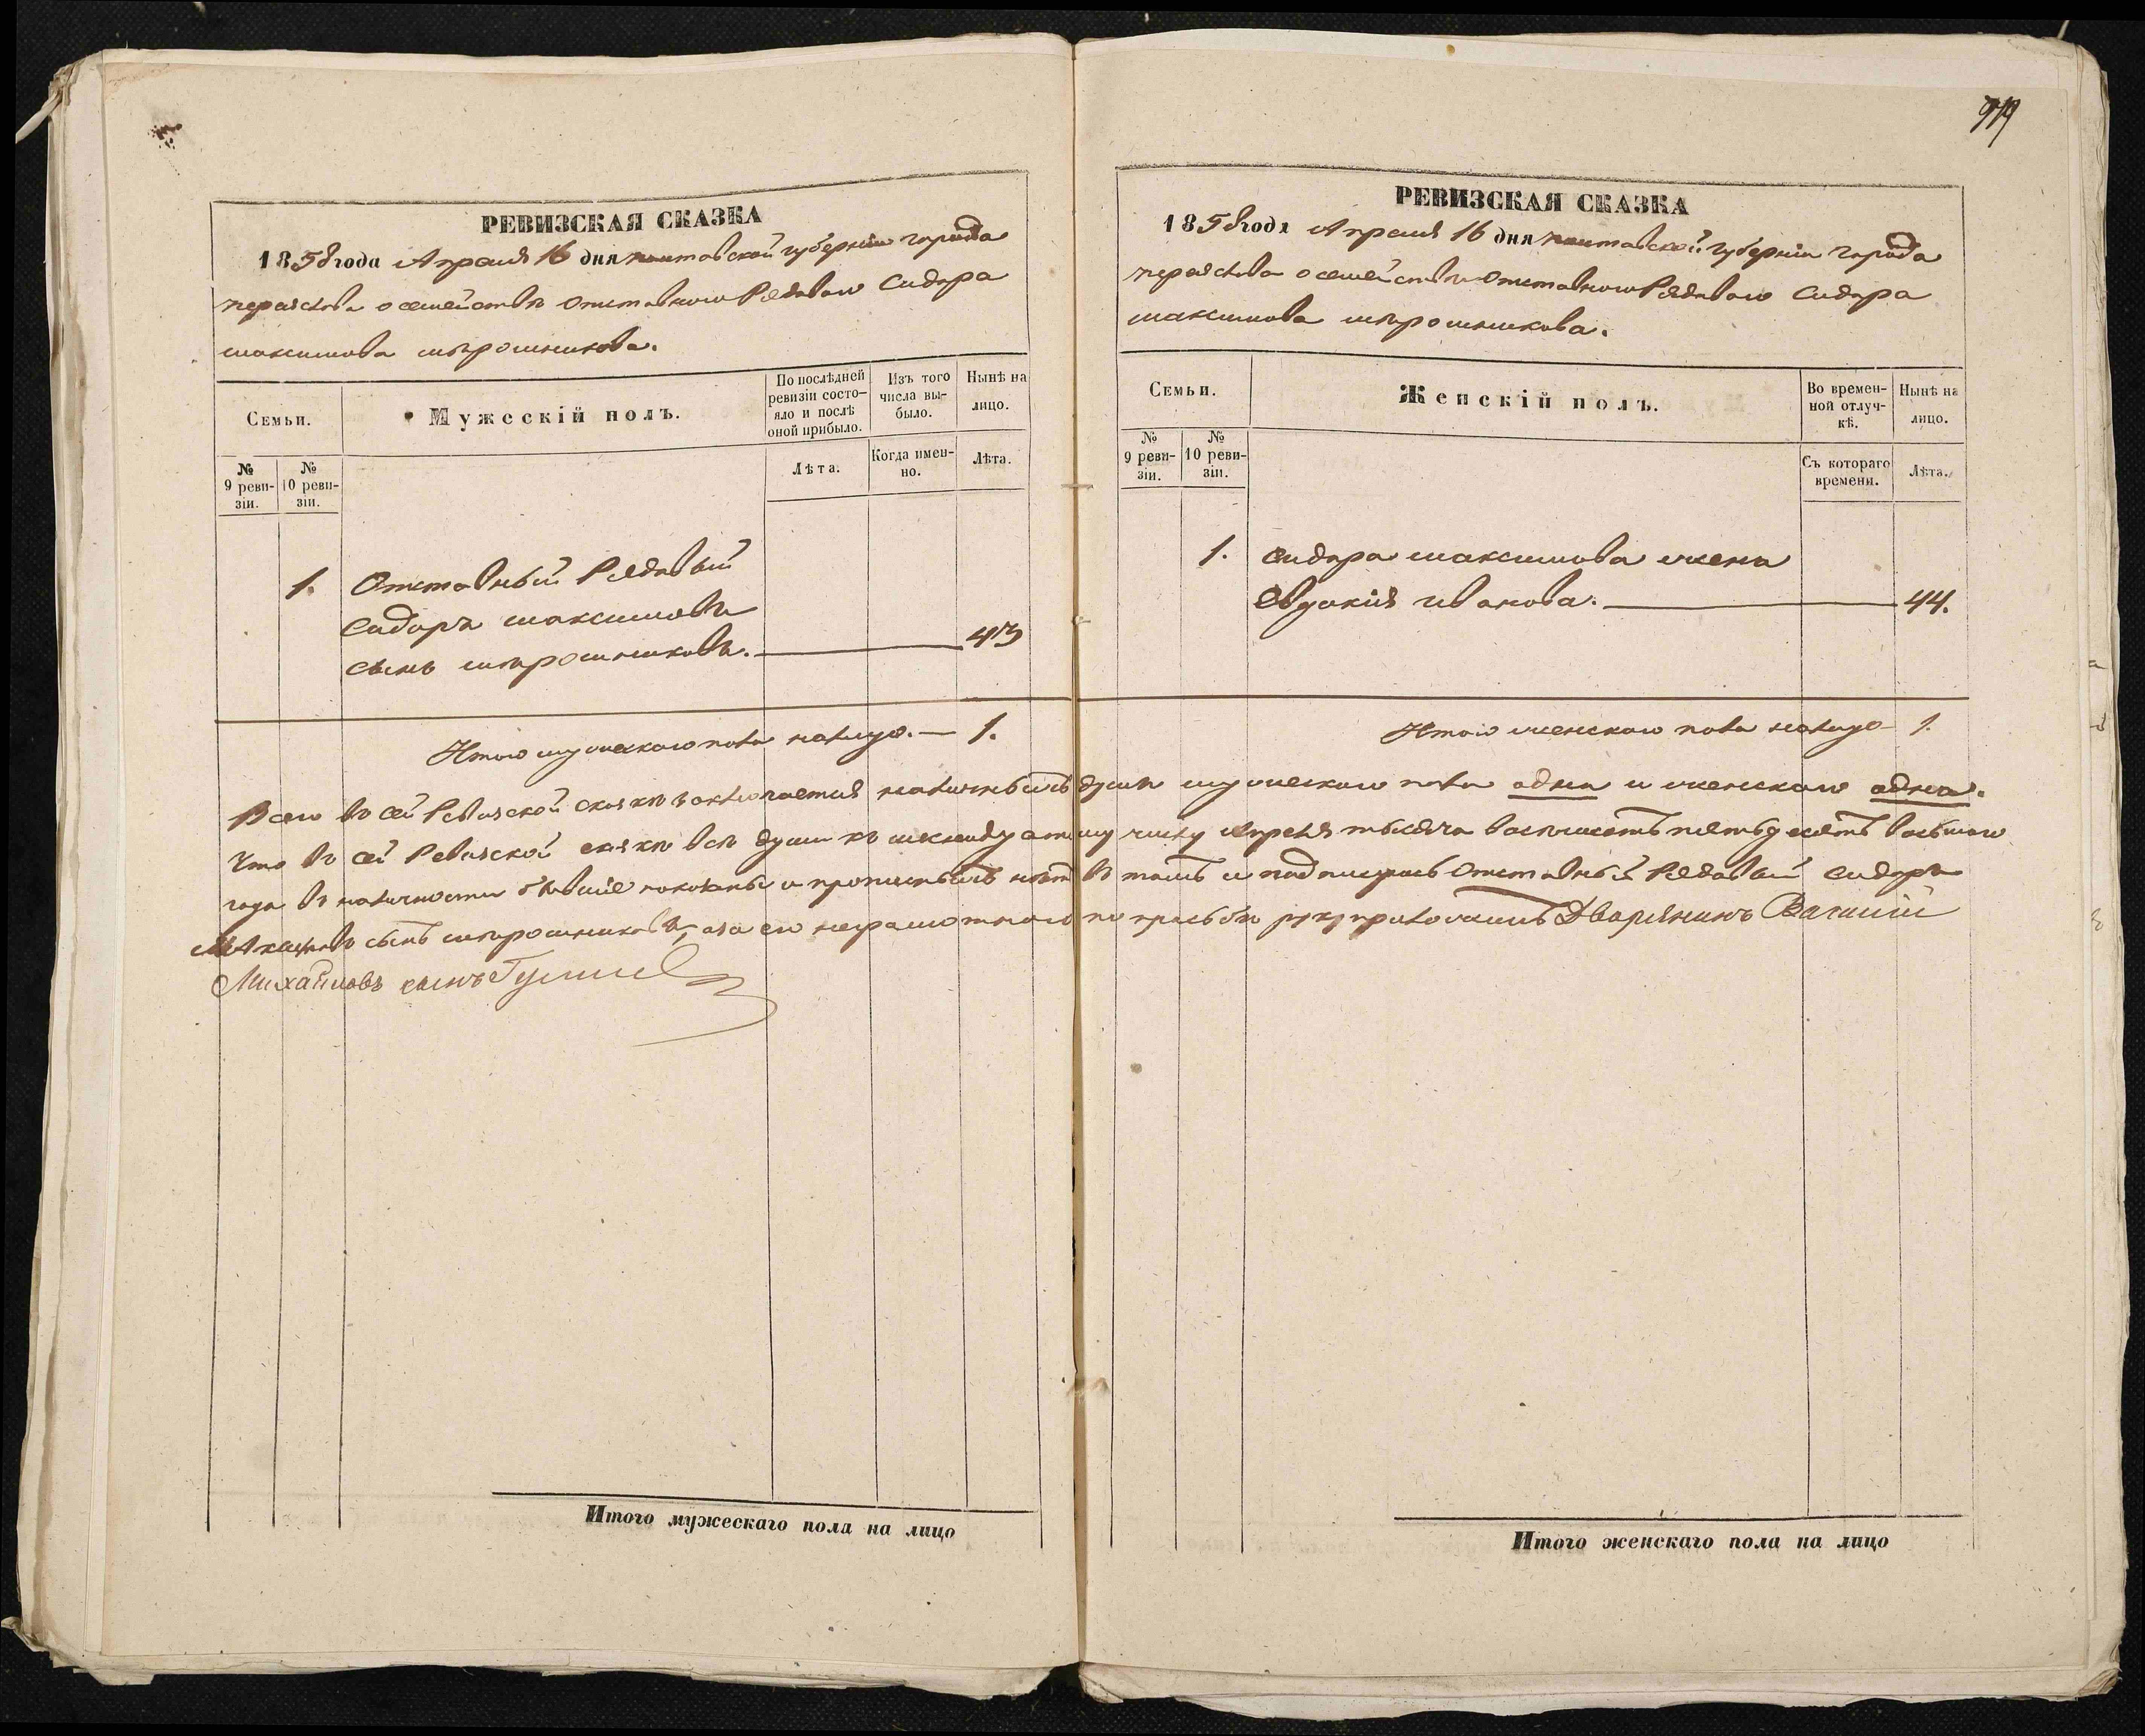 919
РЕВИЗСКАЯ СКАЗКА
1858 года Апреля 16 дня полтавской губерніи города
переяслова о семействѣ отставного Рядоваго Сидора
максимова мѣрошникова.
Семьи.
Мужескій полъ.
По послѣдней ревизіи состояло и послѣ оной прибыло.
Изъ того числа выбыло.
Нынѣ на лицо.
№ 9 ревизіи.
№ 10 ревизіи.
Лѣта.
Когда именно.
Лѣта.
1. Отставный Рядовый
Сидоръ максимовъ
сынъ мѣрошниковъ. 43
Итого мужескаго пола налицо. — 1.
РЕВИЗСКАЯ СКАЗКА
1858 года Апреля 16 дня полтавской губерніи города
переяслова о семействѣ отставного Рядоваго Сидора
максимова мѣрошникова.
Семьи.
Женскій полъ.
Во временной отлучкѣ.
Нынѣ на лицо.
№ 9 ревизіи.
№ 10 ревизіи.
Съ котораго времени.
Лѣта.
1. Сидора максимова жена
Евдокія иванова. 44.
Итого женскаго пола налицо 1.
Всего въ сей Ревизской сказкѣ заключается наличныхъ душъ мужескаго пола одна и женскаго одна.
Что въ сей Ревизской сказкѣ всѣ души къ шежнадцатому числу апреля тысяча восемьсотъ пятьдесятъ восьмаго
года въ наличности бывшіе показаны и прописныхъ нѣтъ въ томъ и подписуюсь Отставный Рядовый Сидоръ
Максимовъ сынъ мѣрошниковъ, а за его неграмотнаго по прозбѣ руку приложилъ Дворянинъ
Михайловъ сынъ
Итого мужескаго пола на лицо
Итого женскаго пола на лицо